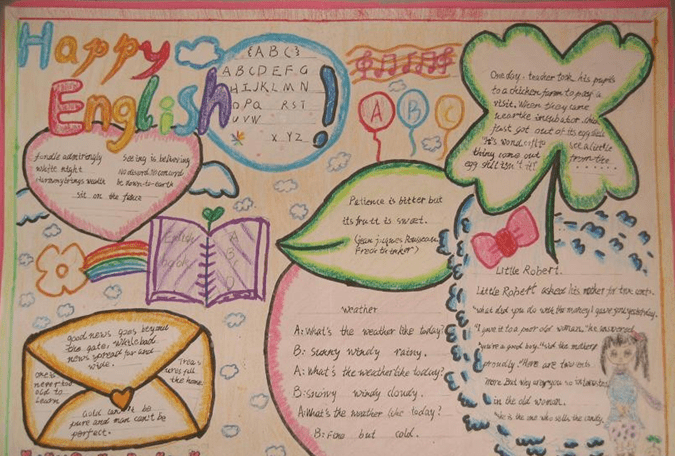 Happy
English!
(A B C)
A B C D E F G
H I J K L M N
O P Q R S T
U V W
X Y Z
A B C
One day. teacher took his pupils
to a chicken farm to pay a
visit. When they
just got out of its egg
thing come out
egg
from the
Seeing is believing
white night
Harmony brings wealth be down-to-earth
sit on the fence
Patience is bitter but
its fruit is sweet.
(Jean Jacques Rousseau,
French thinker)
good news goes beyond
the gate, while bad
news spread far and
wide.
one is
never too
old to
learn
Treas
ures fill
the home
Gold can't be
pure and man can't be
perfect.
weather
A: What's the weather like today?
B: Sunny windy rainy.
A: What's the weather like today?
B: Snowy windy cloudy.
A: What's the weather like today?
B: Fine but cold.
Little Robert.
Little Robert asked his mother for two cents.
"What did you do with the money I gave you yesterday.
"I gave it to a poor old woman," he answered
"you're a good boy," said the mother
proudly. "Here are two cents
more. But why are you so interested
in the old woman.
"She is the one who sells the candy.